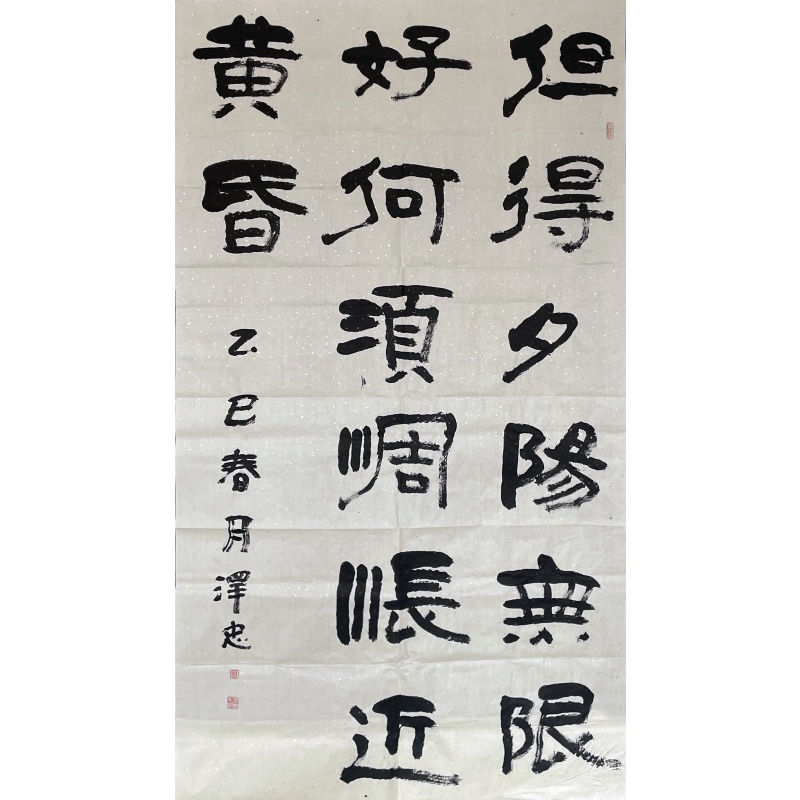 但得夕陽無限
好何須惆悵近
黄昏
乙巳春月澤忠